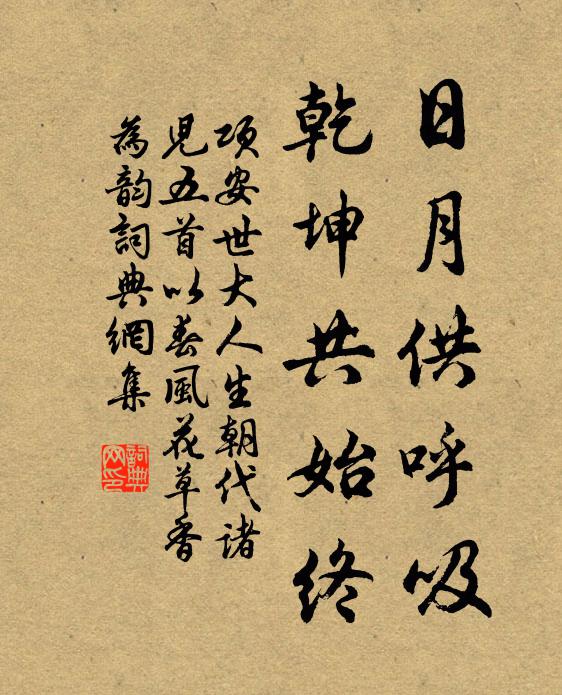 日月供呼吸
乾坤共始終
項安世大人生朝代諸
兒五首以春風花草香
為韵詞典網集
詞典
网印